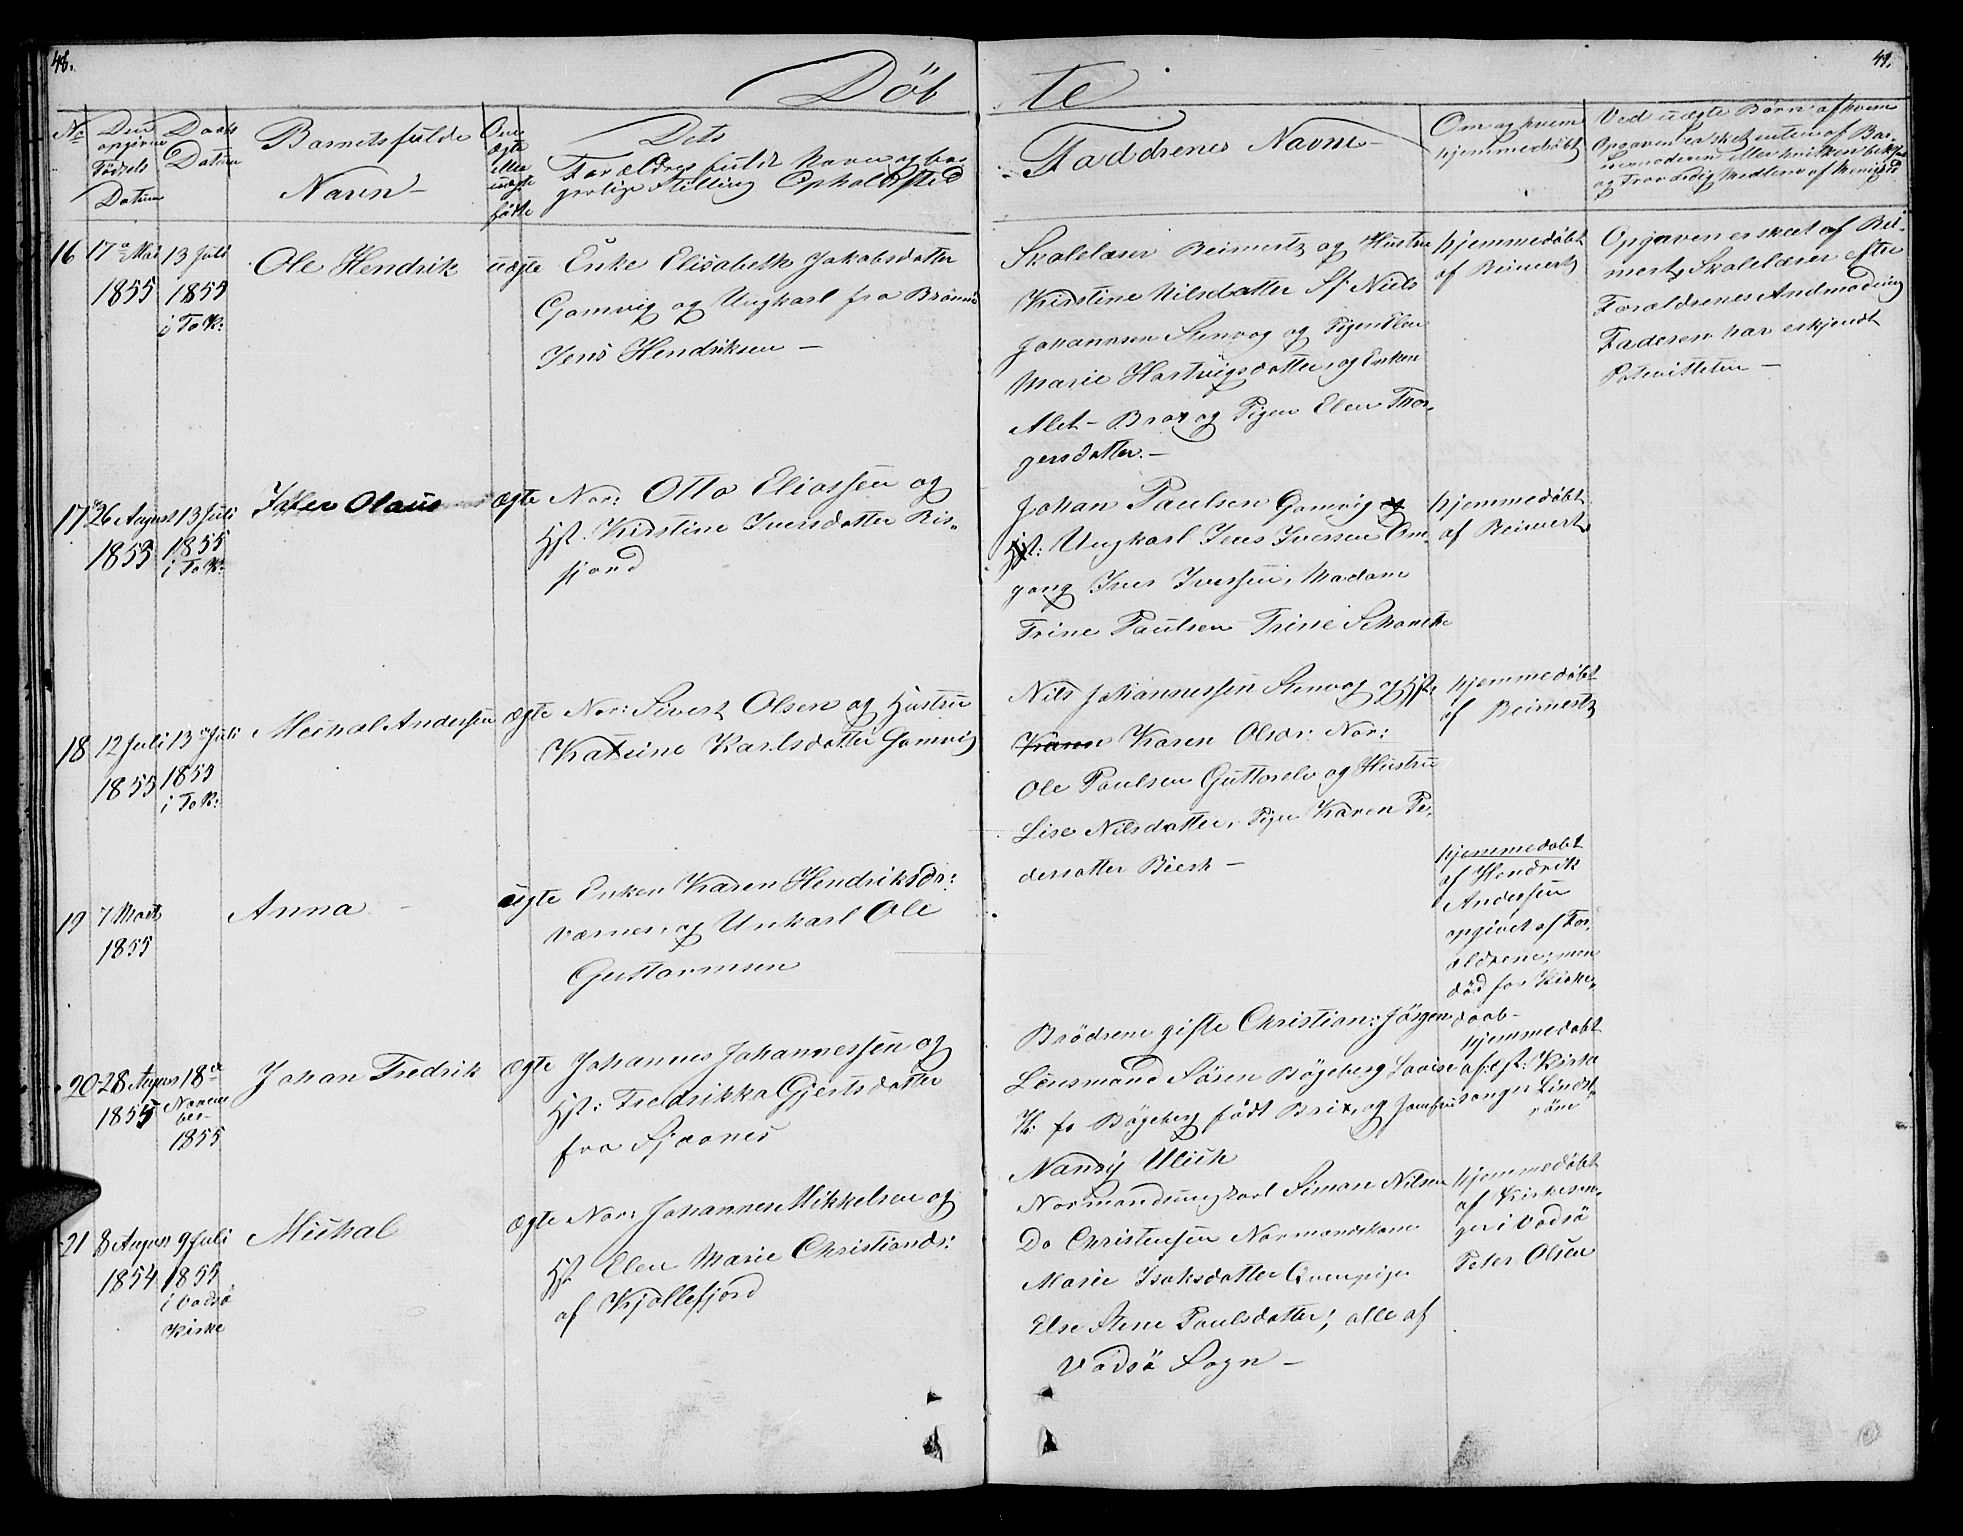 48.
49.
Döbte
No
Den opgivne Fødsels Datum
Daabs Datum
Barnets fulde Navn
Om ægte eller uægte fødte
Dets Forældres fulde Navn og borgerlige Stilling Opholdssted
Faddrenes Navne
Om og hvem hjemmedøbt
Ved uægte Børn: af hvem
16
17de Mai
1855
13 Juli
1855
i Ta K:
Ole Hendrik
uægte
Enke Elisabeth Jakobsdatter
Gamvig og Ungkarl fra Brønnø
Jens Hendriksen —
Skolelærer Beimertz og Hustru
Kirstine Nilsdatter Sf: Niels
Johannesen Stenvog og Pigen Elen
Marie Hartvigsdatter, og Enken
Alet - Brox og Pigen Elen Thor-
gersdatter. —
hjemmedøbt
af Beimertz
Opgaven er skeet af Bei-
mertz, Skolelærer efter
Forældrenes Andmodning
Faderen har erkjendt
Paternitteten —
17
26 August
1853
13 Juli
1855
i Ta K:
Olaus
ægte
Nor: Otto Eliassen og
Hst. Kirstine Iversdatter Ris-
fjord
Johan Paulsen Gamvig og
Hst: Ungkarl Jens Iversen Om-
gang Iver Iversen, Madam
Trine Paulsen Trine Schanche
hjemmedøbt
af Beimertz
18
12 Juli
1855
13 Juli
1855
i Ta K:
Michal Andersen
ægte
Nor: Sivert Olsen og Hustru
Katrine Karlsdatter Gamvig
Nils Johannessen Stenvog og Hst.
Karen Karen Olsdr: Nor:
Ole Paulsen Guttorelv og Hustru
Lise Nilsdatter, Pige Karen Pe-
dersatter Biesk —
hjemmedøbt
af Beimertz
19
7 Marts
1855
Anna
uægte
Enken Karen Hendriksdr:
Værnes, og Unkarl Ole
Guttormsen
hjemmedøbt
af Hendrik
Andersen
opgivet af For-
ældrene; men
død før Kirke-
daab-
20
28 August
1855
18de
Novem
ber-
1855
Johan Fredrik
ægte
Johannes Johannessen og
Hst: Fredrikka Gjertsdatter
fra Sjaanes
Brødrene gifte Christian: Jörgen
Lensmand Sören Bögeberg Lovise
K: fr Bögeberg født Brix, og Jomfru
Nansy Ulich
hjemmedøbt
af: cst: Kirke
sanger Lindst-
röm
21
8 August
1854
9 Juli
1855
i Vadsø
Kirke
Michal
ægte
Nor: Johannes Mikkelsen og
Hst Elen Marie Christiansdr:
af Kjøllefjord
Normandungkarl Simon Nilsen
Do Christensen Normandskone
Marie Isaksdatter Qvenpige
Else Stene Paulsdatter, alle af
Vadsø Sogn —
hjemmedøbt
af Kirkesan-
ger i Vadsø
Peter Olsen